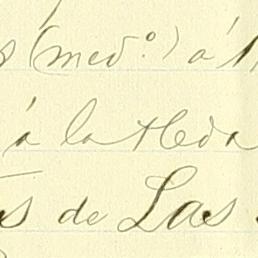 (med.º) á
á la Hda
de Las